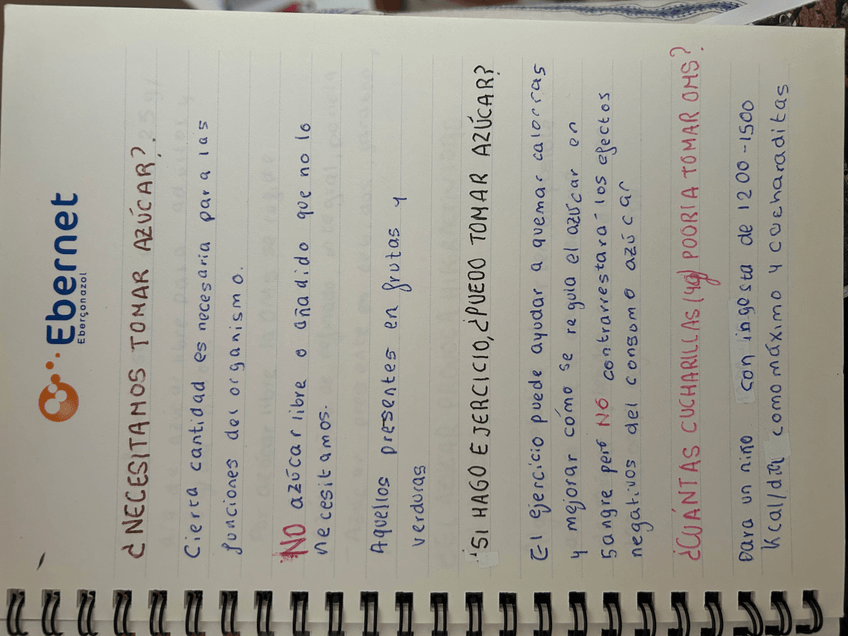 Ebernet
Eberconazol
¿NECESITAMOS TOMAR AZÚCAR?.
Cierta cantidad es necesaria para las
funciones del organismo.
NO azúcar libre o añadido que no lo
necesitamos.
Aquellos presentes en frutas y
verduras
"SI HAGO EJERCICIO,¿PUEDO TOMAR AZÚCAR?
El ejercicio puede ayudar a quemar calorías
y mejorar cómo se regula el azúcar en
sangre pero NO contrarrestará los efectos
negativos del consumo azúcar
¿CUÁNTAS CUCHARILLAS (4g) PODRÍA TOMAR OMS?
Para un niño con ingesta de 1200-1500
Kcal/día como máximo 4 cucharaditas